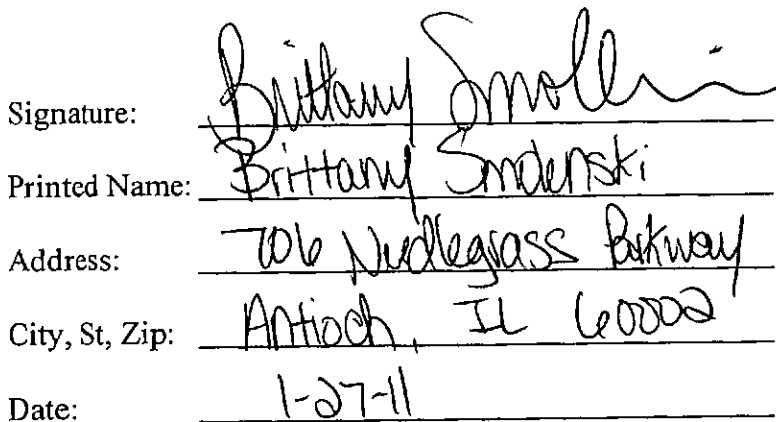 Signature: Brittany Smolenski
Printed Name: Brittany Smolenski
Address: 706 Needlegrass Parkway
City, St, Zip: Antioch, IL 60002
Date: 1-27-11